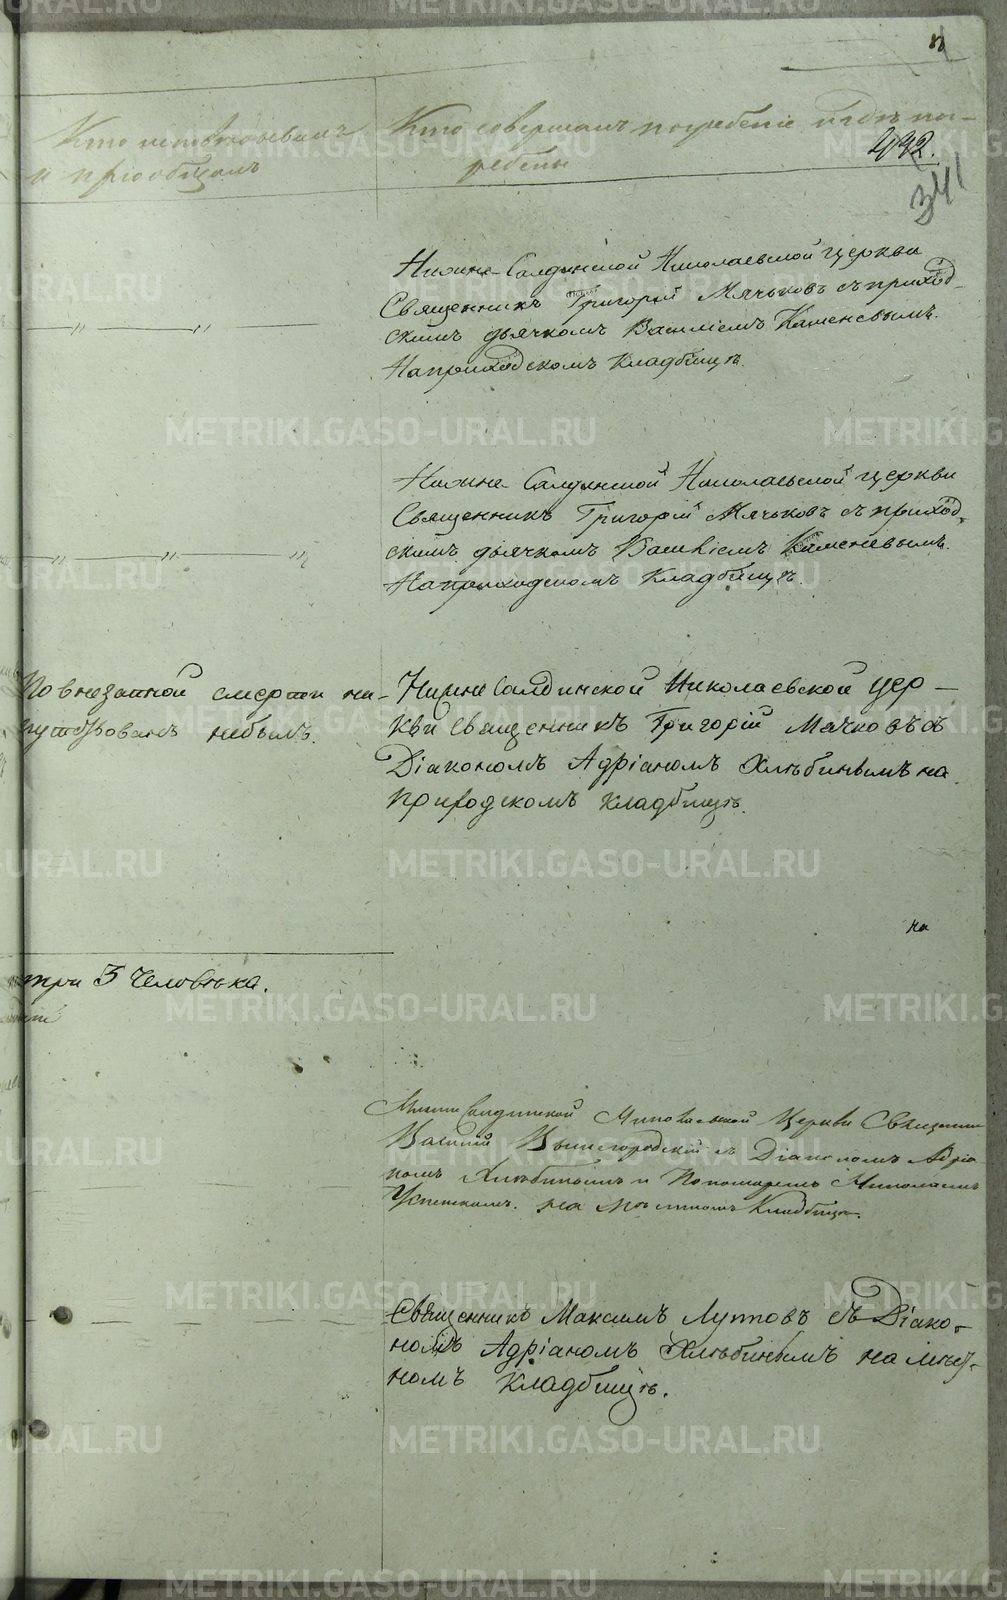 492.
341
Кто исповѣдывалъ
и пріобщалъ
Кто совершалъ погребеніе и гдѣ пог-
ребены
Нижне-Салдинской Николаевской церкви
Священникъ Григорій Мячьковъ съ приход-
скимъ дьячкомъ Василіемъ Каменевымъ.
На приходскомъ кладбищѣ.
Нижне-Салдинской Николаевской церкви
Священникъ Григорій Мячьковъ съ приход-
скимъ дьячкомъ Василіемъ Каменевымъ.
На приходскомъ кладбищѣ.
По внезапной смерти на-
путствованъ небылъ.
Нижне Салдинской Николаевской цер-
кви священникъ Григорій Мачковъ съ
Діакономъ Адріаномъ Хлѣбинымъ на
приходскомъ кладбищѣ.
на
три 3 человѣка.
Нижне Салдинской Николаевской Церкви Священни
Василій Вышегородскій съ Діакономъ Адріа
номъ Хлѣбинымъ и Пономаремъ Николаемъ
Успенскимъ. на мѣстномъ Кладбищѣ.
Священникъ Максимъ Луттовъ съ Діако-
номъ Адріаномъ Хлѣбинымъ на мѣст-
номъ кладбищѣ.
METRIKI.GASO-URAL.RU